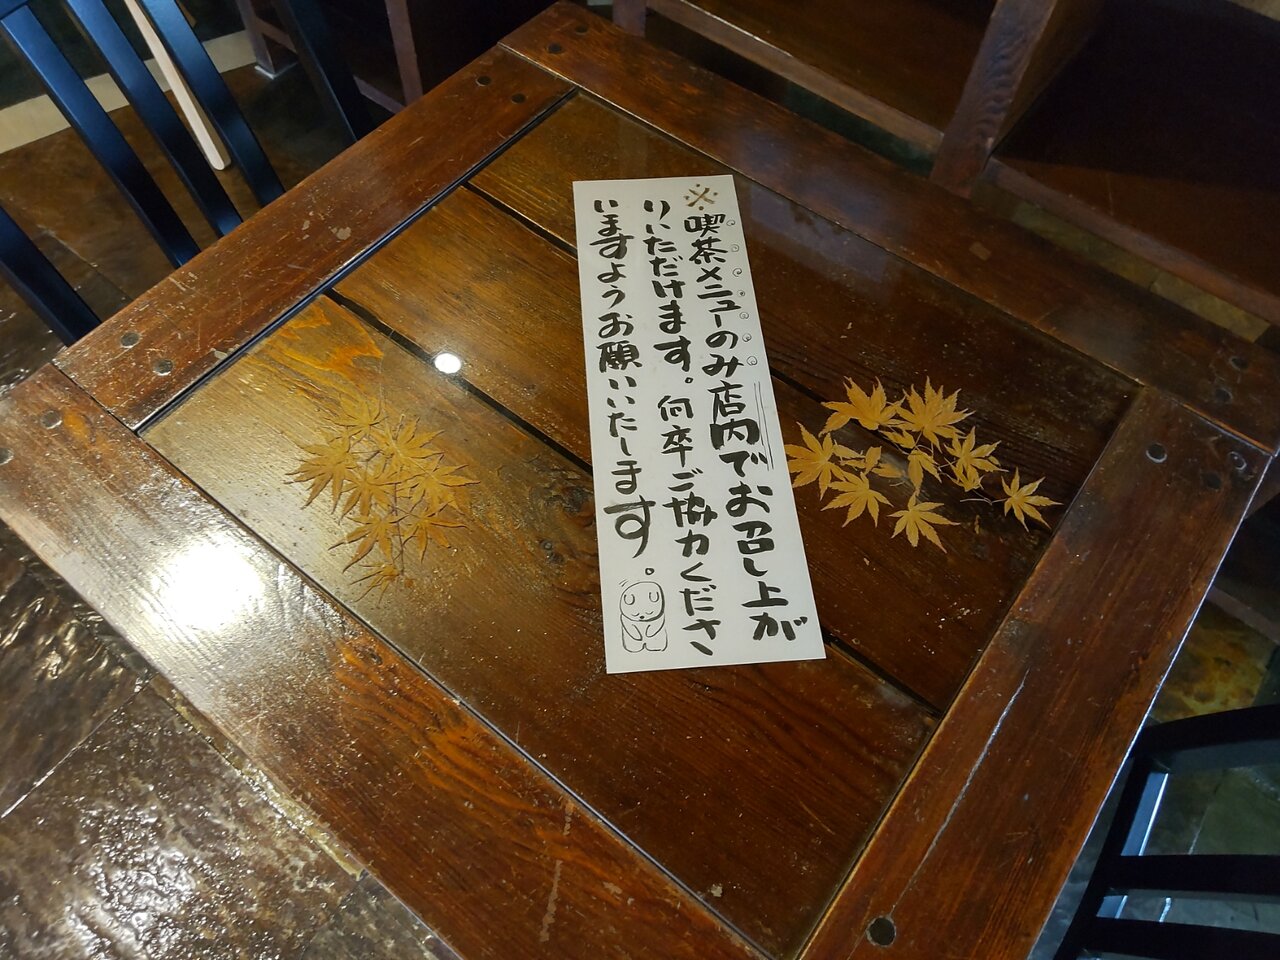 ※喫茶メニューのみ店内でお召し上が
りいただけます。何卒ご協力くださ
いますようお願いいたします。